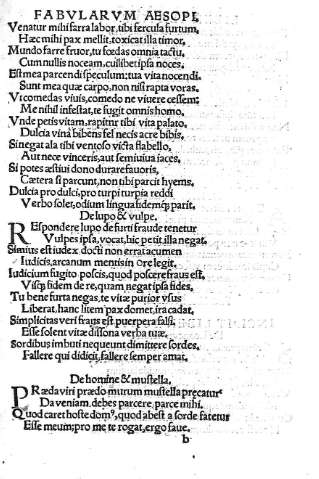 FABVLARVM AESOPI.
Venatur mihi farra labor, tibi fercula furtum,
Hæc mihi pax mellit, toxicat illa timor,
Mundo farre fruor, tu fœdas omnia tactu,
Cum nullis noceam, cuilibet ipsa noces.
Est mea parcendi speculum: tua vita nocendi.
Sunt mea quæ carpo, non nisi rapta voras.
Vt comedas viuis, comedo ne viuere cessem;
Me nihil infestat, te fugit omnis homo.
Vnde petis vitam, rapitur tibi vita palato.
Dulcia vina bibens fel necis acre bibis,
Si negat ala tibi ventoso victa flabello,
Aut nece vinceris, aut semiuiua iaces,
Si potes æstiui dono durare fauoris,
Cætera si parcunt, non tibi parcit hyems.
Dulcia pro dulci, pro turpi turpia reddi
Verbo solet, odium lingua fidemq́; parit.
De lupo & vulpe.
REspondere lupo de furti fraude tenetur
Vulpes ipsa, vocat, hic petit, illa negat.
Simius est iudex docti non errat acumen
Iudicis, arcanum mentis in ore legit.
Iudicium fugito poscis, quod poscere fraus est,
Visq́; fidem de re, quam negat ipsa fides,
Tu bene furta negas, te vitæ purior vsus
Liberat, hanc litem pax domet, ira cadat,
Simplicitas veri fraus est puerpera falsi.
Esse solent vitæ dissona verba tuæ.
Sordibus imbuti nequeunt dimittere sordes.
Fallere qui didicit, fallere semper amat.
De homine & mustella.
PRæda viri prædo murum mustella precatur
Da veniam, debes parcere, parce mihi.
Quod caret hoste domꝰ, quod abest a sorde fatetur
Esse meum; pro me te rogat, ergo faue.
b